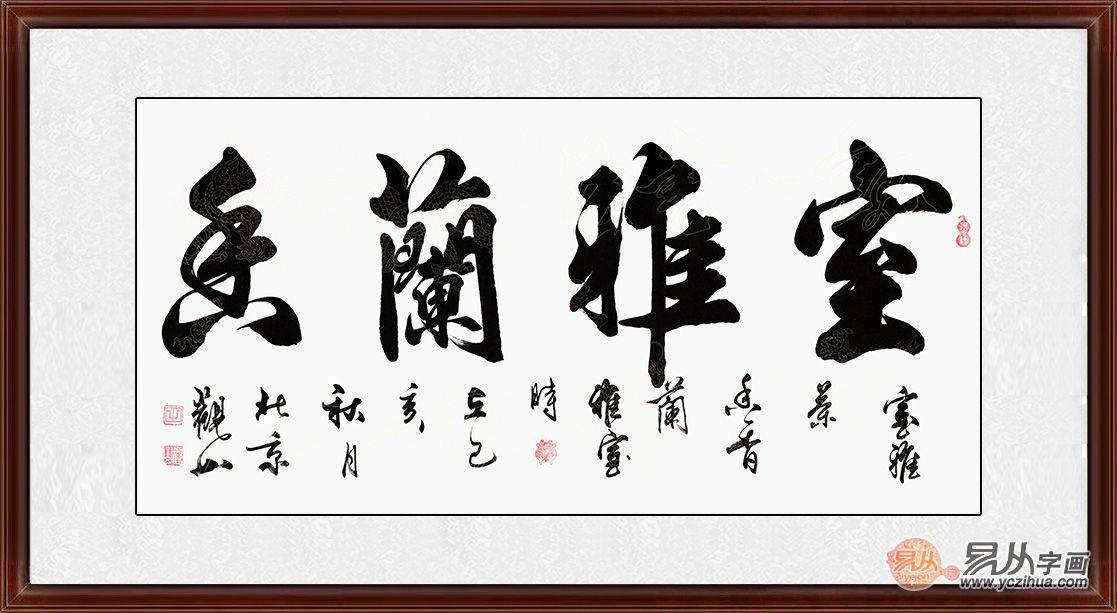 室雅蘭香
室雅
蘭
香香
蘭
雅室
時
在己
亥
秋月
北京
觀山
易从
易从字画
www.yczihua.com